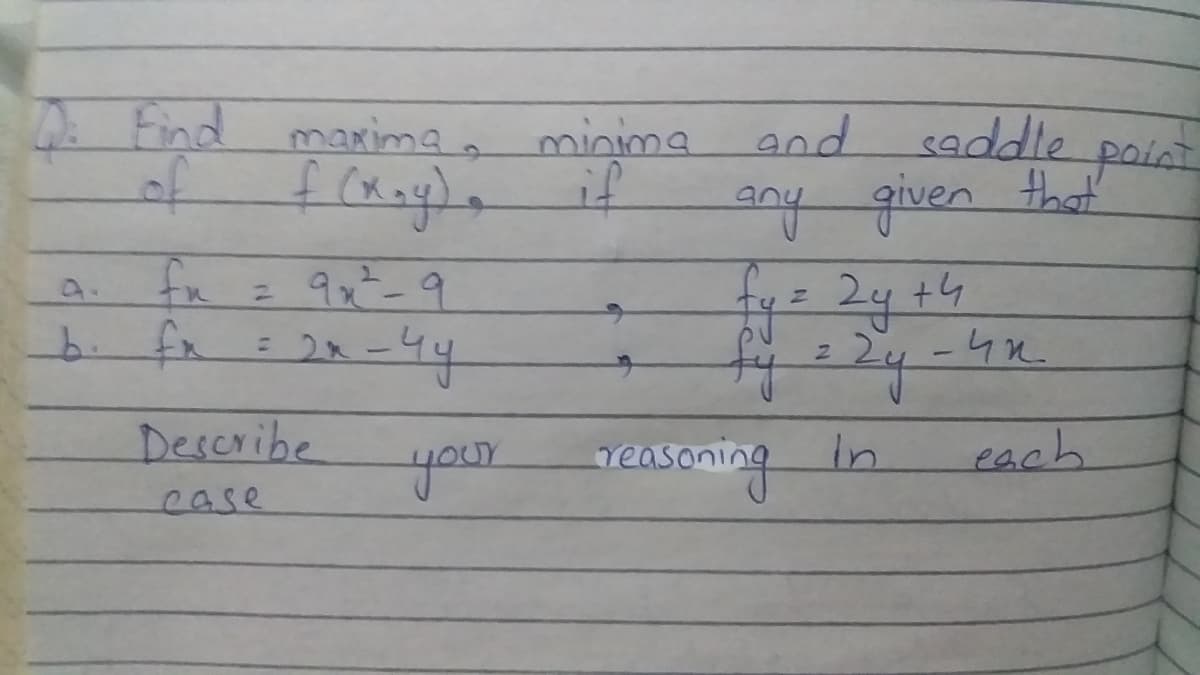 Q: Find maxima, minima and saddle point
of f(x,y), if any given that
a. fx = 9x²-9 , fy = 2y+4
b. fx = 2x-4y , fy = 2y-4x
Describe your reasoning In each
case